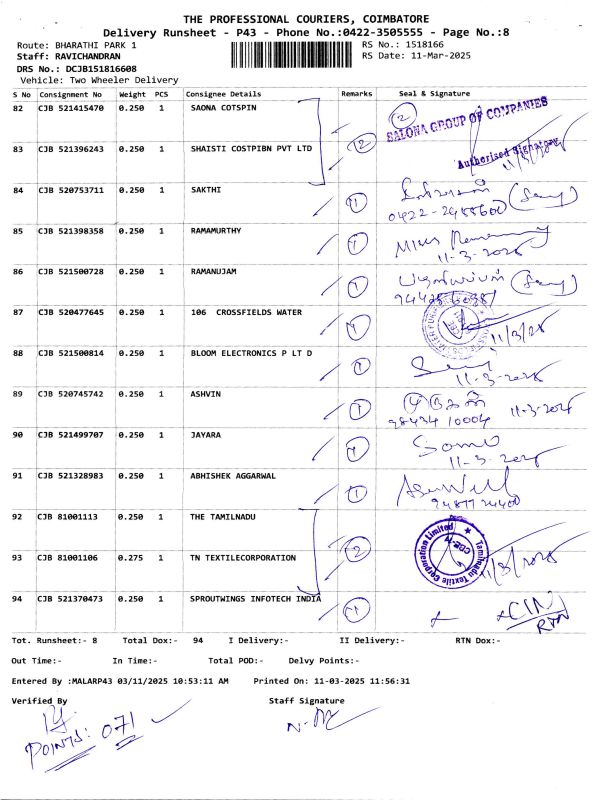 THE PROFESSIONAL COURIERS, COIMBATORE
Delivery Runsheet - P43 - Phone No.:0422-3505555 - Page No.:8
Route: BHARATHI PARK 1 RS No.: 1518166
Staff: RAVICHANDRAN RS Date: 11-Mar-2025
DRS No.: DCJB151816608
Vehicle: Two Wheeler Delivery
S No Consignment No Weight PCS Consignee Details Remarks Seal & Signature
82 CJB 521415470 0.250 1 SAONA COTSPIN 2
SALONA GROUP OF COMPANIES
83 CJB 521396243 0.250 1 SHAISTI COSTPIBN PVT LTD 2
Authorised Signatory
84 CJB 520753711 0.250 1 SAKTHI 1
0422-2488600
85 CJB 521398358 0.250 1 RAMAMURTHY 1
11-3-2025
86 CJB 521500728 0.250 1 RAMANUJAM 1
87 CJB 520477645 0.250 1 106 CROSSFIELDS WATER 1
11/3/25
88 CJB 521500814 0.250 1 BLOOM ELECTRONICS P LT D 1
11-3-2025
89 CJB 520745742 0.250 1 ASHVIN 1
11-3-2025
98434 10004
90 CJB 521499707 0.250 1 JAYARA 1
11-3-2025
91 CJB 521328983 0.250 1 ABHISHEK AGGARWAL 1
92 CJB 81001113 0.250 1 THE TAMILNADU
93 CJB 81001106 0.275 1 TN TEXTILECORPORATION 2
Tamilnadu Textile Corporation Limited
CBE-
11/3/2025
94 CJB 521370473 0.250 1 SPROUTWINGS INFOTECH INDIA 1
RTN
Tot. Runsheet:- 8 Total Dox:- 94 I Delivery:- II Delivery:- RTN Dox:-
Out Time:- In Time:- Total POD:- Delvy Points:-
Entered By :MALARP43 03/11/2025 10:53:11 AM Printed On: 11-03-2025 11:56:31
Verified By Staff Signature
POINTS: 071